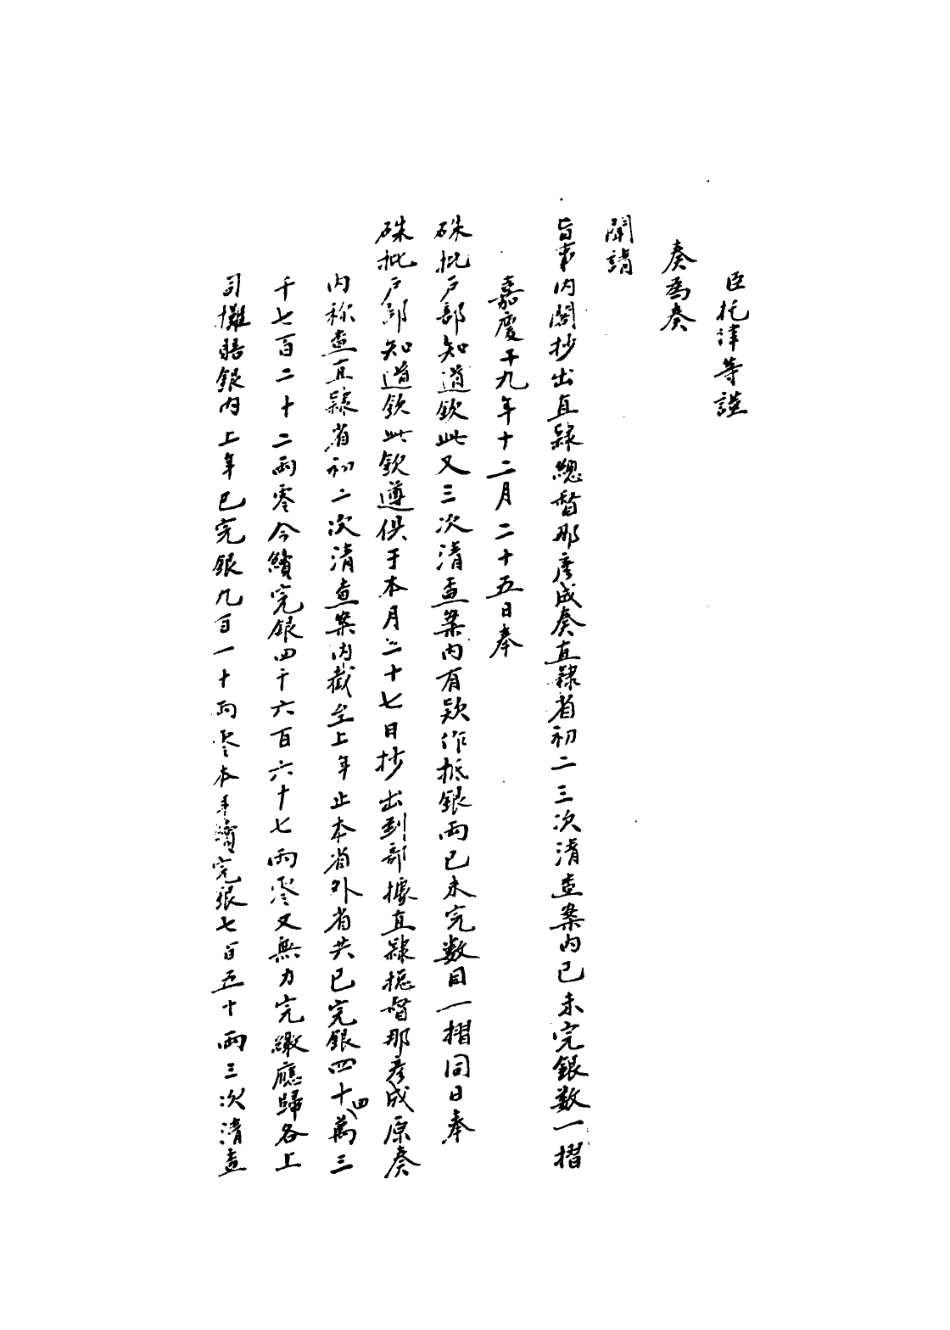 臣托津等謹
奏為奏
聞請
旨事內閣抄出直隸總督那彥成奏直隸省初二三次清查案內已未完銀數一摺
嘉慶十九年十二月二十五日奉
硃批戶部知道欽此又三次清查案內有款作抵銀兩已未完數目一摺同日奉
硃批戶部知道欽此欽遵俱于本月二十七日抄出到部據直隸總督那彥成原奏
內称查直隸省初二次清查案內截至上年止本省外省共已完銀四十四萬三
千七百二十二兩零今續完銀四千六百六十七兩零又無力完繳應歸各上
司攤賠銀內上年已完銀九百一十兩零本年續完銀七百五十兩三次清查